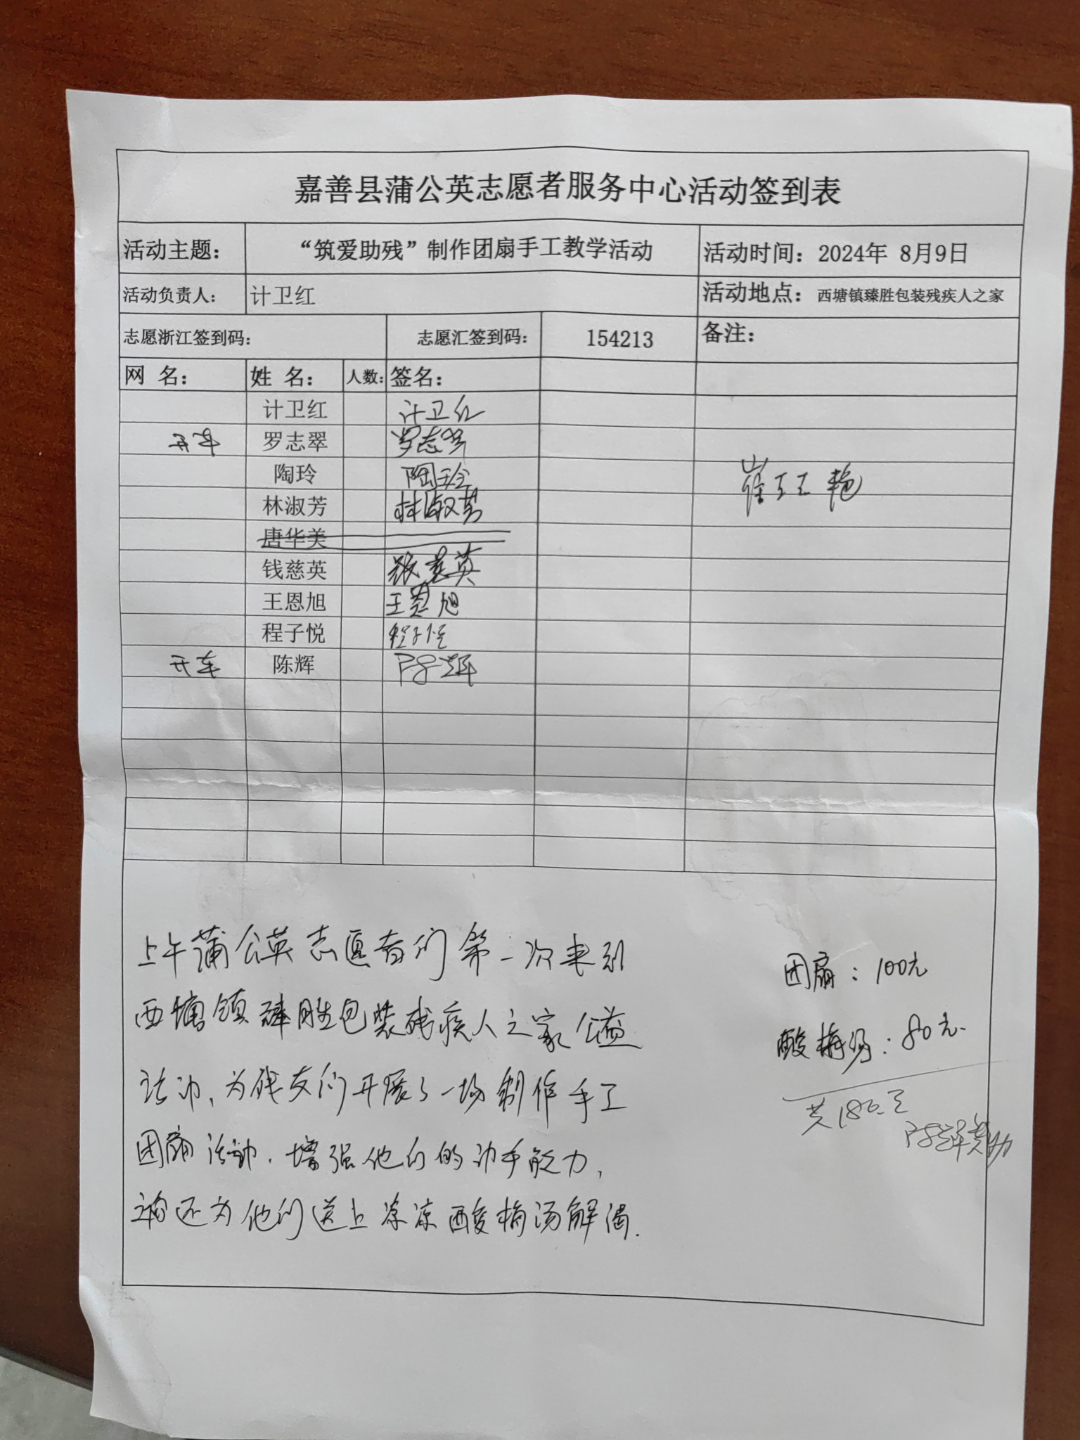 嘉善县蒲公英志愿者服务中心活动签到表
活动主题： “筑爱助残”制作团扇手工教学活动 活动时间：2024年 8月9日
活动负责人： 计卫红 活动地点：西塘镇臻胜包装残疾人之家
志愿浙江签到码： 志愿汇签到码： 154213 备注：
网 名： 姓 名： 人数： 签名：
计卫红 计卫红
开车 罗志翠 罗志翠
陶玲 陶玲
崔玉艳
林淑芳 林淑芳
唐华美
钱慈英 钱慈英
王恩旭 王恩旭
程子悦 程子悦
开车 陈辉 陈辉
上午蒲公英志愿者们第一次来到
西塘镇臻胜包装残疾人之家公益
活动，为残友们开展了一场制作手工
团扇活动，增强他们的动手能力，
还为他们送上冰凉酸梅汤解渴.
团扇：100元
酸梅汤：80元.
共180元
陈辉赞助